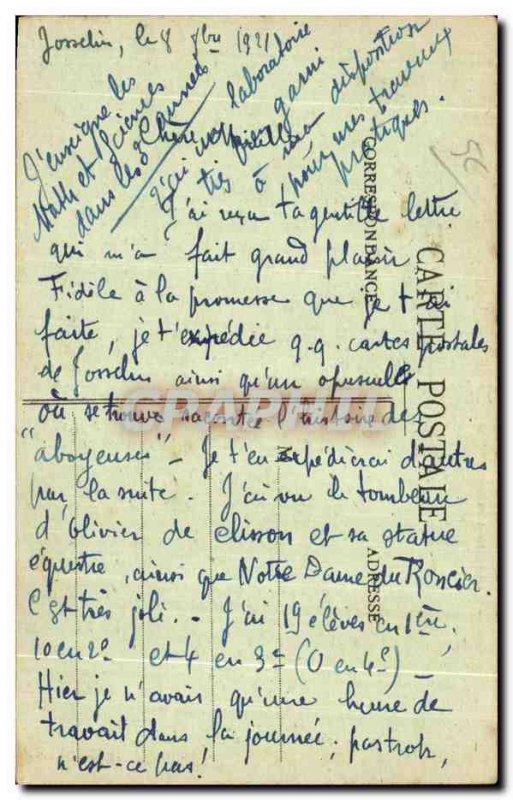 Josselin, le 8 9bre 1921
J'enseigne les
Math et Sciences
dans les 3 Années
J'ai un laboratoire
garni
très à ma disposition
pour mes travaux
pratiques.
Chère
J'ai reçu ta gentille lettre
qui m'a fait grand plaisir
Fidèle à la promesse que je t'ai
faite, je t'expédie q.q. cartes postales
de Josselin ainsi qu'un opuscule
où se trouve racontée l'histoire des
"aboyeuses" - Je t'en expédierai d'autres
par la suite. J'ai vu le tombeau
d'Olivier de Clisson et sa statue
équestre, ainsi que Notre Dame du Roncier.
C'est très joli. - J'ai 19 élèves en 1ère,
10 en 2e et 4 en 3e (0 en 4e) -
Hier je n'avais qu'une heure de
travail dans la journée; pas trop,
n'est-ce pas!
CARTE POSTALE
CORRESPONDANCE
ADRESSE